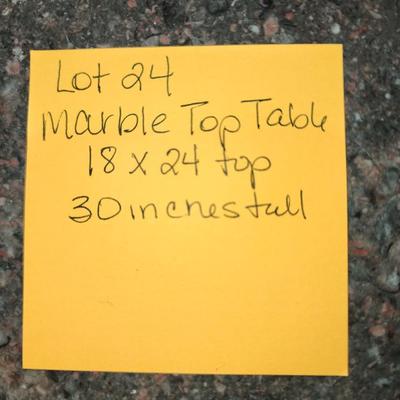 Lot 24
Marble Top Table
18 x 24 top
30 inches tall